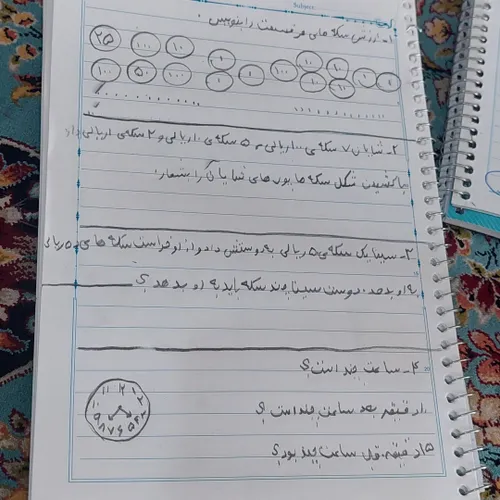 Subject:
۱- ارزش سکه های هر قسمت را بنویس.
۲۵ ۱۰۰ ۱۰
۱۰۰ ۵۰ ۱۰۰ ۱۰۰
۲- شایان ۷ سکه‌ی ۱۰۰ ریالی و ۵ سکه‌ی ۱۰ ریالی و ۲ سکه‌ی ۱ ریالی دارد
با کشیدن شکل سکه ها پول های شایان را بشمار.
۳- سینا یک سکه‌ی ریالی به دوستش داد و از او خواست سکه های ریالی
به او بدهد. دوست سینا چند سکه باید به او بدهد؟
۴- ساعت چند است؟
۱۰ دقیقه بعد ساعت چند است؟
۱۵ دقیقه قبل ساعت چند بود؟